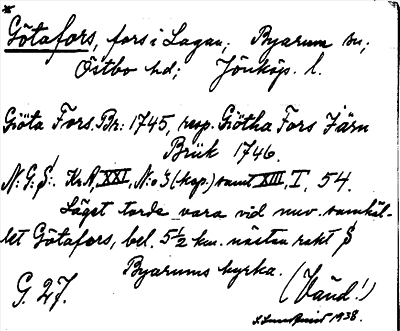 Götafors, fors i Lagan; Byarum sn;
Östbo hd; Jönköp. l.
Göta Fors. Br: 1745, resp. Giötha Fors Järn
Brük 1746.
N.G.S! Kr.A, XXI, N:o 3 (kop.) samt XIII, I, 54.
Läget torde vara vid nuv. samhäl-
let Götafors, bel. 5½ km. nästan rakt S
Byarums kyrka.
G. 27. (Vänd!)
1938.